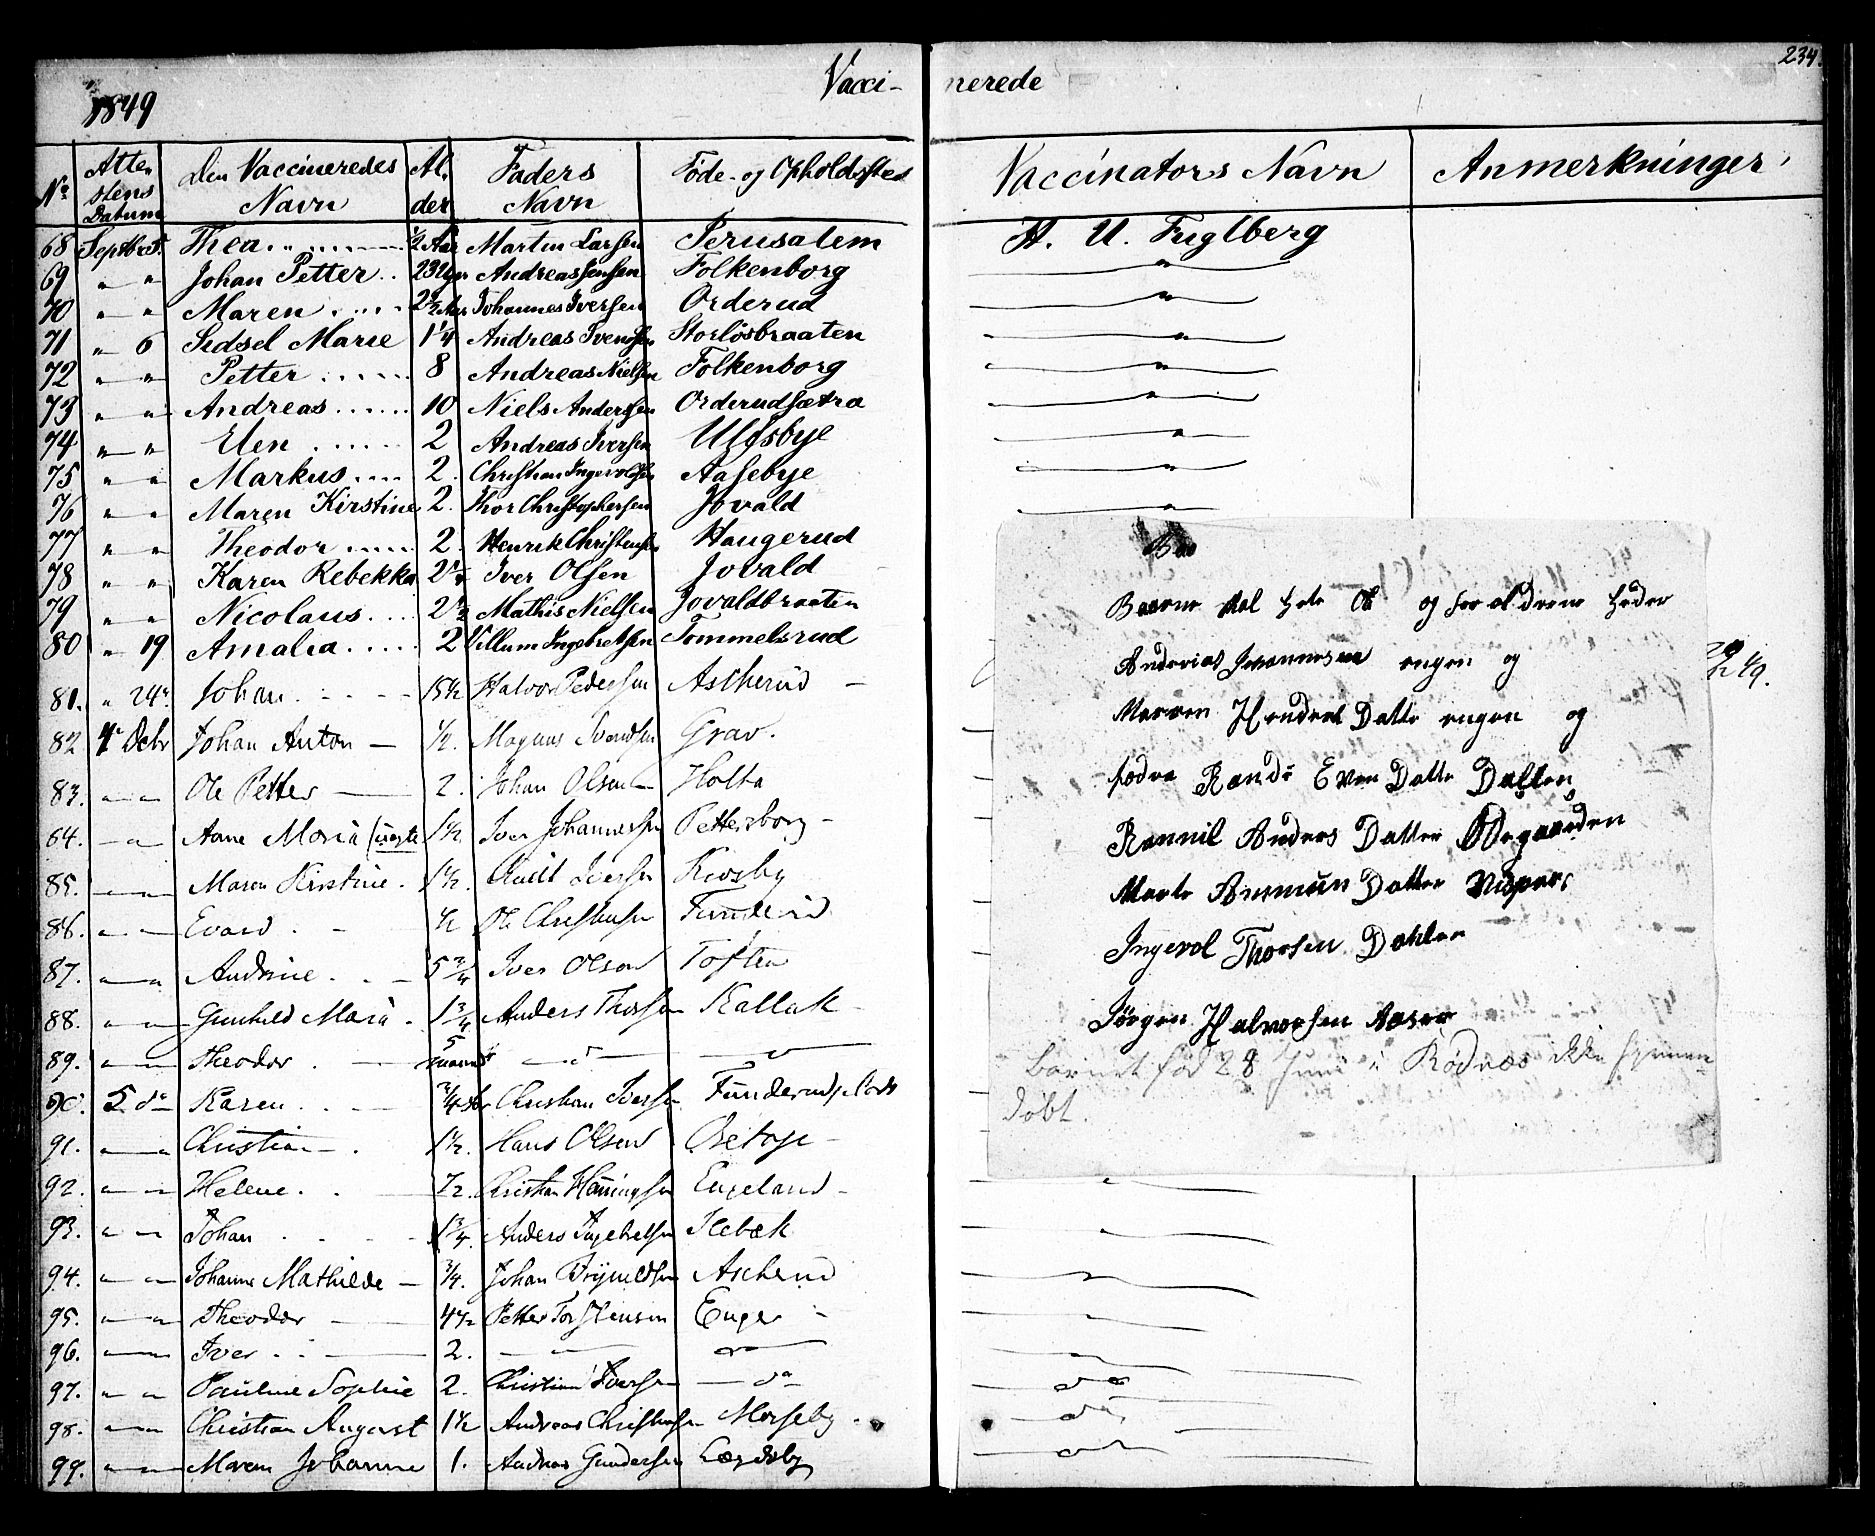 234.
1849
Vaccinerede
No Attestens Datum Den Vaccineredes Navn Alder Faders Navn Føde- og Opholdssted Vaccinators Navn Anmerkninger
68 Septbr 5. Thea 1/2 Aar Martin Larsen Jerusalem H. U. Fuglberg
69 " " Johan Petter Andreas Jensen Folkenborg "
70 " " Maren 2 1/2 Aar Johannes Iversen Orderud "
71 " 6 Sidsel Marie 1 1/4 Andreas Svendsen Storløsbraaten "
72 " " Petter 8 Andreas Nielsen Folkenborg "
73 " " Andreas 10 Niels Andersen Orderudsætra "
74 " " Elen 2 Andreas Iversen Ulfsbye "
75 " " Markus 2. Christian Ingevoldsen Aasebye "
76 " " Maren Kirstine 2. Thor Christophersen Jovald "
77 " " Theodor 2. Henrik Christensen Haugerud
78 " " Karen Rebekka Iver Olsen Jovald
79 " " Nicolaus 2 1/2 Mathis Nielsen Jovaldbraaten
80 " 19 Amalia 2 Villum Ingebretsen Tommelsrud
81. " 24. Johan 15 1/2 Halvor Pedersen Ascherud
82 4 Debr Johan Anton 1/2. Magnus Svendsen Grav.
83. " " Ole Petter 2. Johan Olsen Holta
64. " " Anne Maria (yngste 1 1/2 Iver Johannessen Pettersborg
85. " " Maren Kirstine 1 1/2. Iversen
86. " " Evard 1/2 Ole Christensen Funderud
87. " " Andrine 5 3/4 Iver Olsen Toften
88. " " Gunhild Maria 1 3/4 Anders Thorsen Kallak
89. " " Theodor 5 maaneder " "
90. 5 do Karen 3/4 Christian Iversen Funderud
91. " " Christian 1 1/2. Hans Olsen
92. " " Helene. Christian Henningsen Engeland
93. " " Johan 1 3/4. Anders Ingebretsen Ilebæk
94. " " Johanne Mathilde 3/4. Johan Brynildsen Ascherud
95. " " Theodor 4 1/2 Petter Torstensen Enger
96. " " Iver 2. " "
97. " " Pauline Sophie 2. Christian Iversen do
98. " " Christian August 1 1/2 Andreas Christensen Morseby
99. " " Maren Johanne 1. Andreas Gundersen Lærdsby
Baa
Baarne skal hete Ole og foraldrene heder
Anderias Jovannesen engen og
Marren Hendrek Datte engen og
fadra Randi Even Datte Dalten
Rannil Anders Datter Ødegaarden
Marte Amun Datter
Ingevol Thorsen Dahlen
Jörgen Halvorsen Aaser
barnet fød 28 Juni i Rødnæs ikke hjemme
døbt.